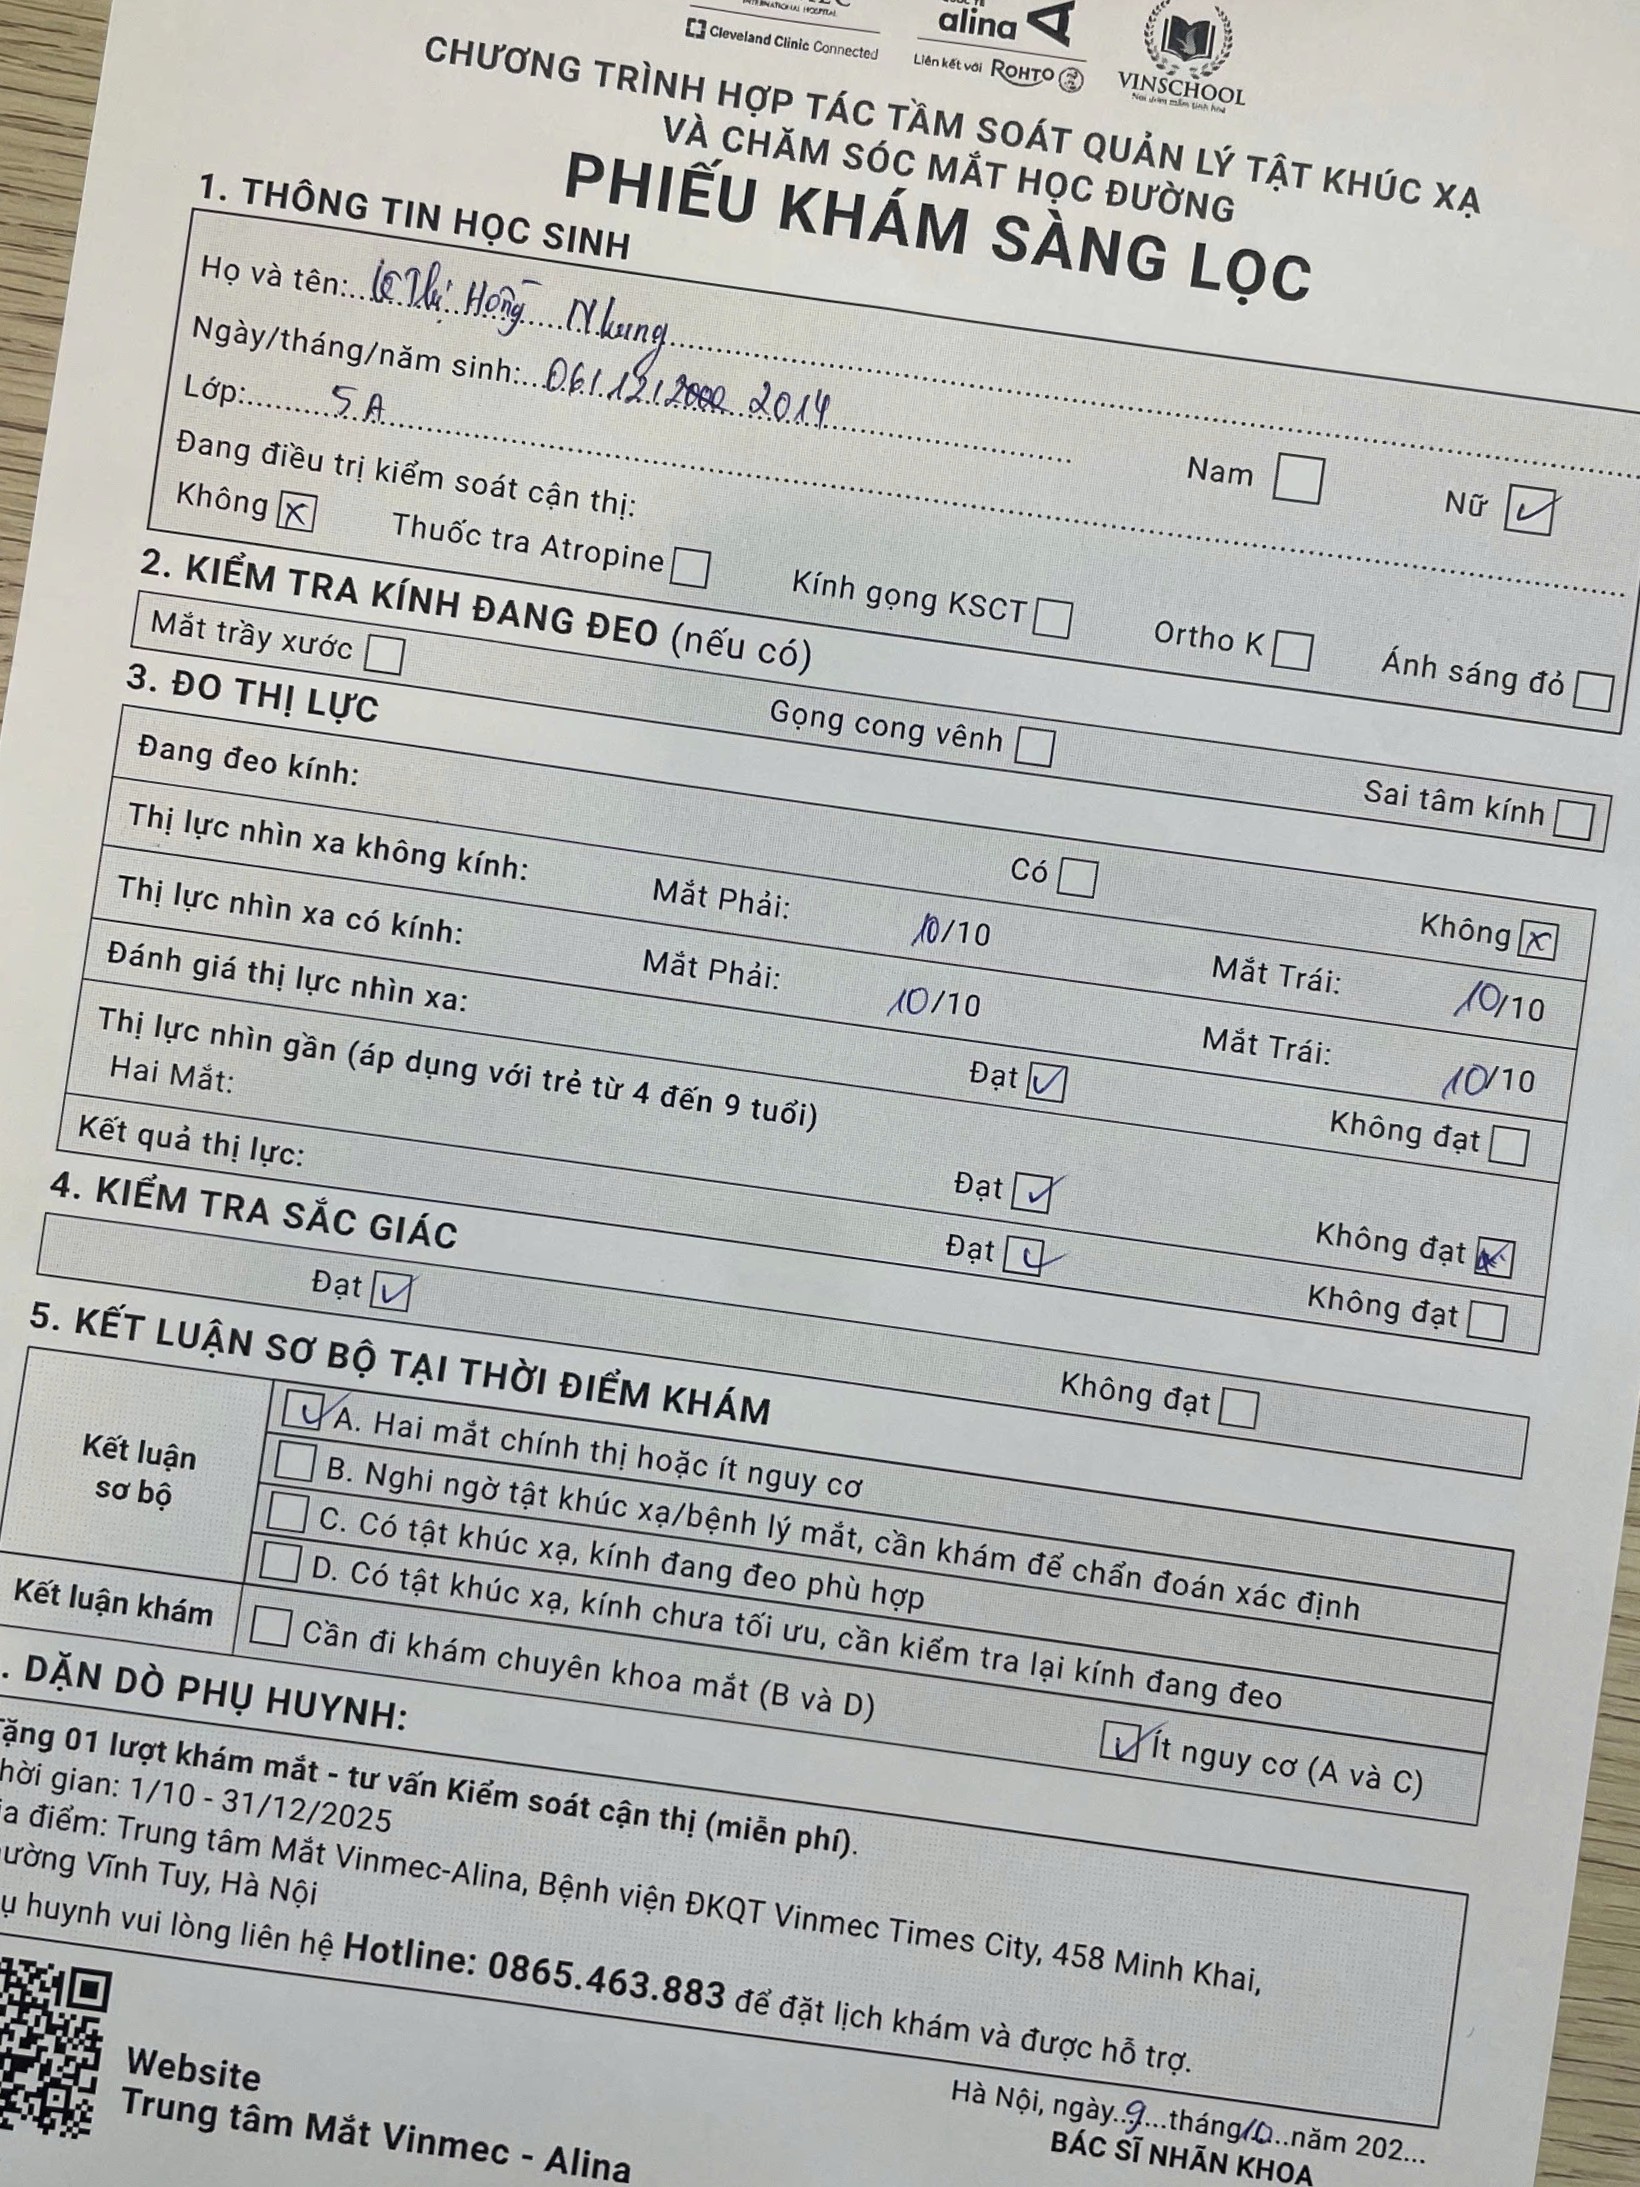 INTERNATIONAL HOSPITAL
Cleveland Clinic Connected
alina
Liên kết với ROHTO
VINSCHOOL
Nơi ươm mầm tinh hoa
CHƯƠNG TRÌNH HỢP TÁC TẦM SOÁT QUẢN LÝ TẬT KHÚC XẠ
VÀ CHĂM SÓC MẮT HỌC ĐƯỜNG
PHIẾU KHÁM SÀNG LỌC
1. THÔNG TIN HỌC SINH
Họ và tên: Lê Thị Hồng Nhung
Ngày/tháng/năm sinh: 06/12/2014 Nam ☐ Nữ ☑
Lớp: 5A
Đang điều trị kiểm soát cận thị:
Không ☒ Thuốc tra Atropine ☐ Kính gọng KSCT ☐ Ortho K ☐ Ánh sáng đỏ ☐
2. KIỂM TRA KÍNH ĐANG ĐEO (nếu có)
Mắt trầy xước ☐ Gọng cong vênh ☐ Sai tâm kính ☐
3. ĐO THỊ LỰC
Đang đeo kính: Có ☐ Không ☒
Thị lực nhìn xa không kính: Mắt Phải: 10/10 Mắt Trái: 10/10
Thị lực nhìn xa có kính: Mắt Phải: 10/10 Mắt Trái: 10/10
Đánh giá thị lực nhìn xa: Đạt ☑ Không đạt ☐
Thị lực nhìn gần (áp dụng với trẻ từ 4 đến 9 tuổi)
Hai Mắt: Đạt ☑ Không đạt ☒
Kết quả thị lực: Đạt ☑ Không đạt ☐
4. KIỂM TRA SẮC GIÁC
Đạt ☑ Không đạt ☐
5. KẾT LUẬN SƠ BỘ TẠI THỜI ĐIỂM KHÁM
Kết luận sơ bộ
☑ A. Hai mắt chính thị hoặc ít nguy cơ
☐ B. Nghi ngờ tật khúc xạ/bệnh lý mắt, cần khám để chẩn đoán xác định
☐ C. Có tật khúc xạ, kính đang đeo phù hợp
☐ D. Có tật khúc xạ, kính chưa tối ưu, cần kiểm tra lại kính đang đeo
Kết luận khám ☐ Cần đi khám chuyên khoa mắt (B và D) ☑ Ít nguy cơ (A và C)
. DẶN DÒ PHỤ HUYNH:
ặng 01 lượt khám mắt - tư vấn Kiểm soát cận thị (miễn phí).
hời gian: 1/10 - 31/12/2025
ịa điểm: Trung tâm Mắt Vinmec-Alina, Bệnh viện ĐKQT Vinmec Times City, 458 Minh Khai,
ường Vĩnh Tuy, Hà Nội
ụ huynh vui lòng liên hệ Hotline: 0865.463.883 để đặt lịch khám và được hỗ trợ.
Website
Trung tâm Mắt Vinmec - Alina
Hà Nội, ngày 9 tháng 10 năm 202...
BÁC SĨ NHÃN KHOA